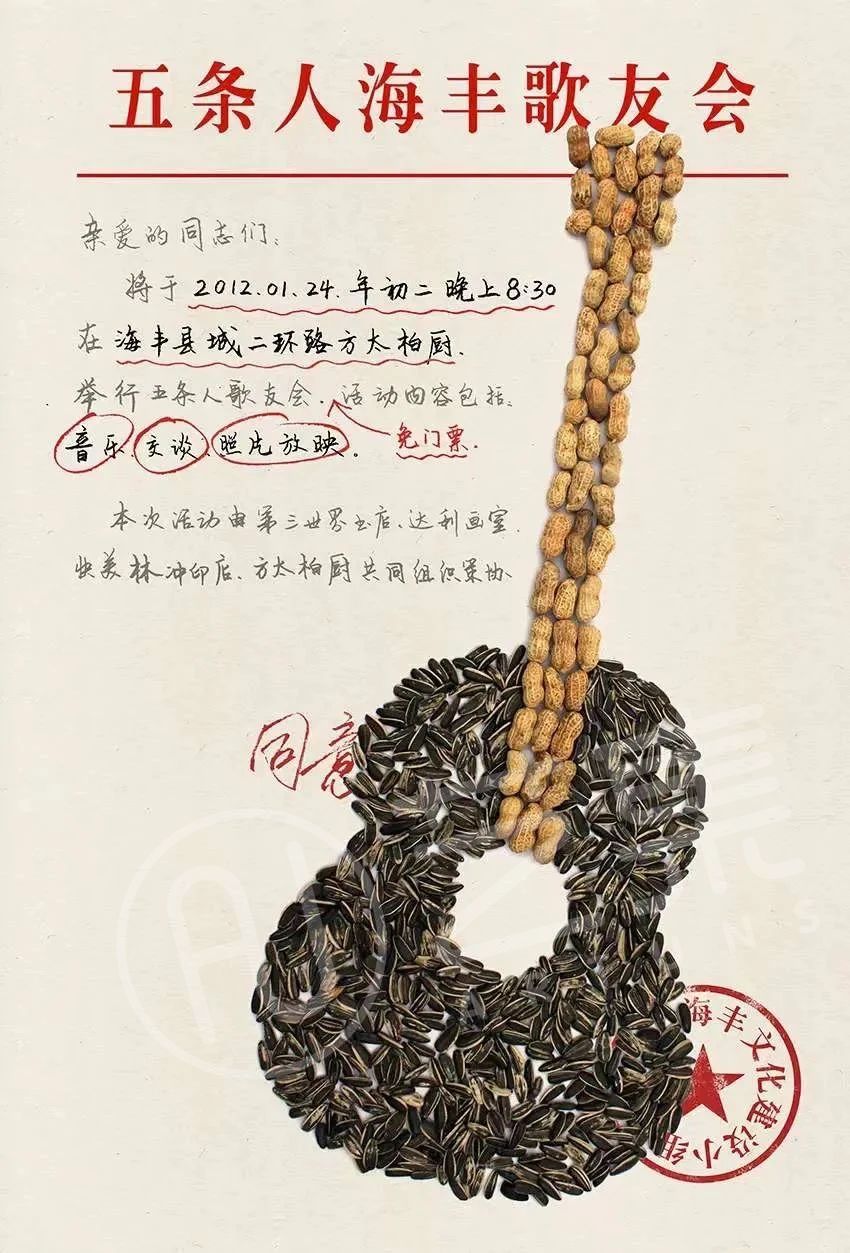 五条人海丰歌友会
亲爱的同志们:
将于 2012.01.24.年初二晚上8:30
在 海丰县城二环路方太柏厨.
举行五条人歌友会.活动内容包括:
音乐.交谈.照片放映.
免门票.
本次活动由第三世界书店、达利画室.
快美林冲印店、方太柏厨共同组织策协
同意
海丰文化建设小组